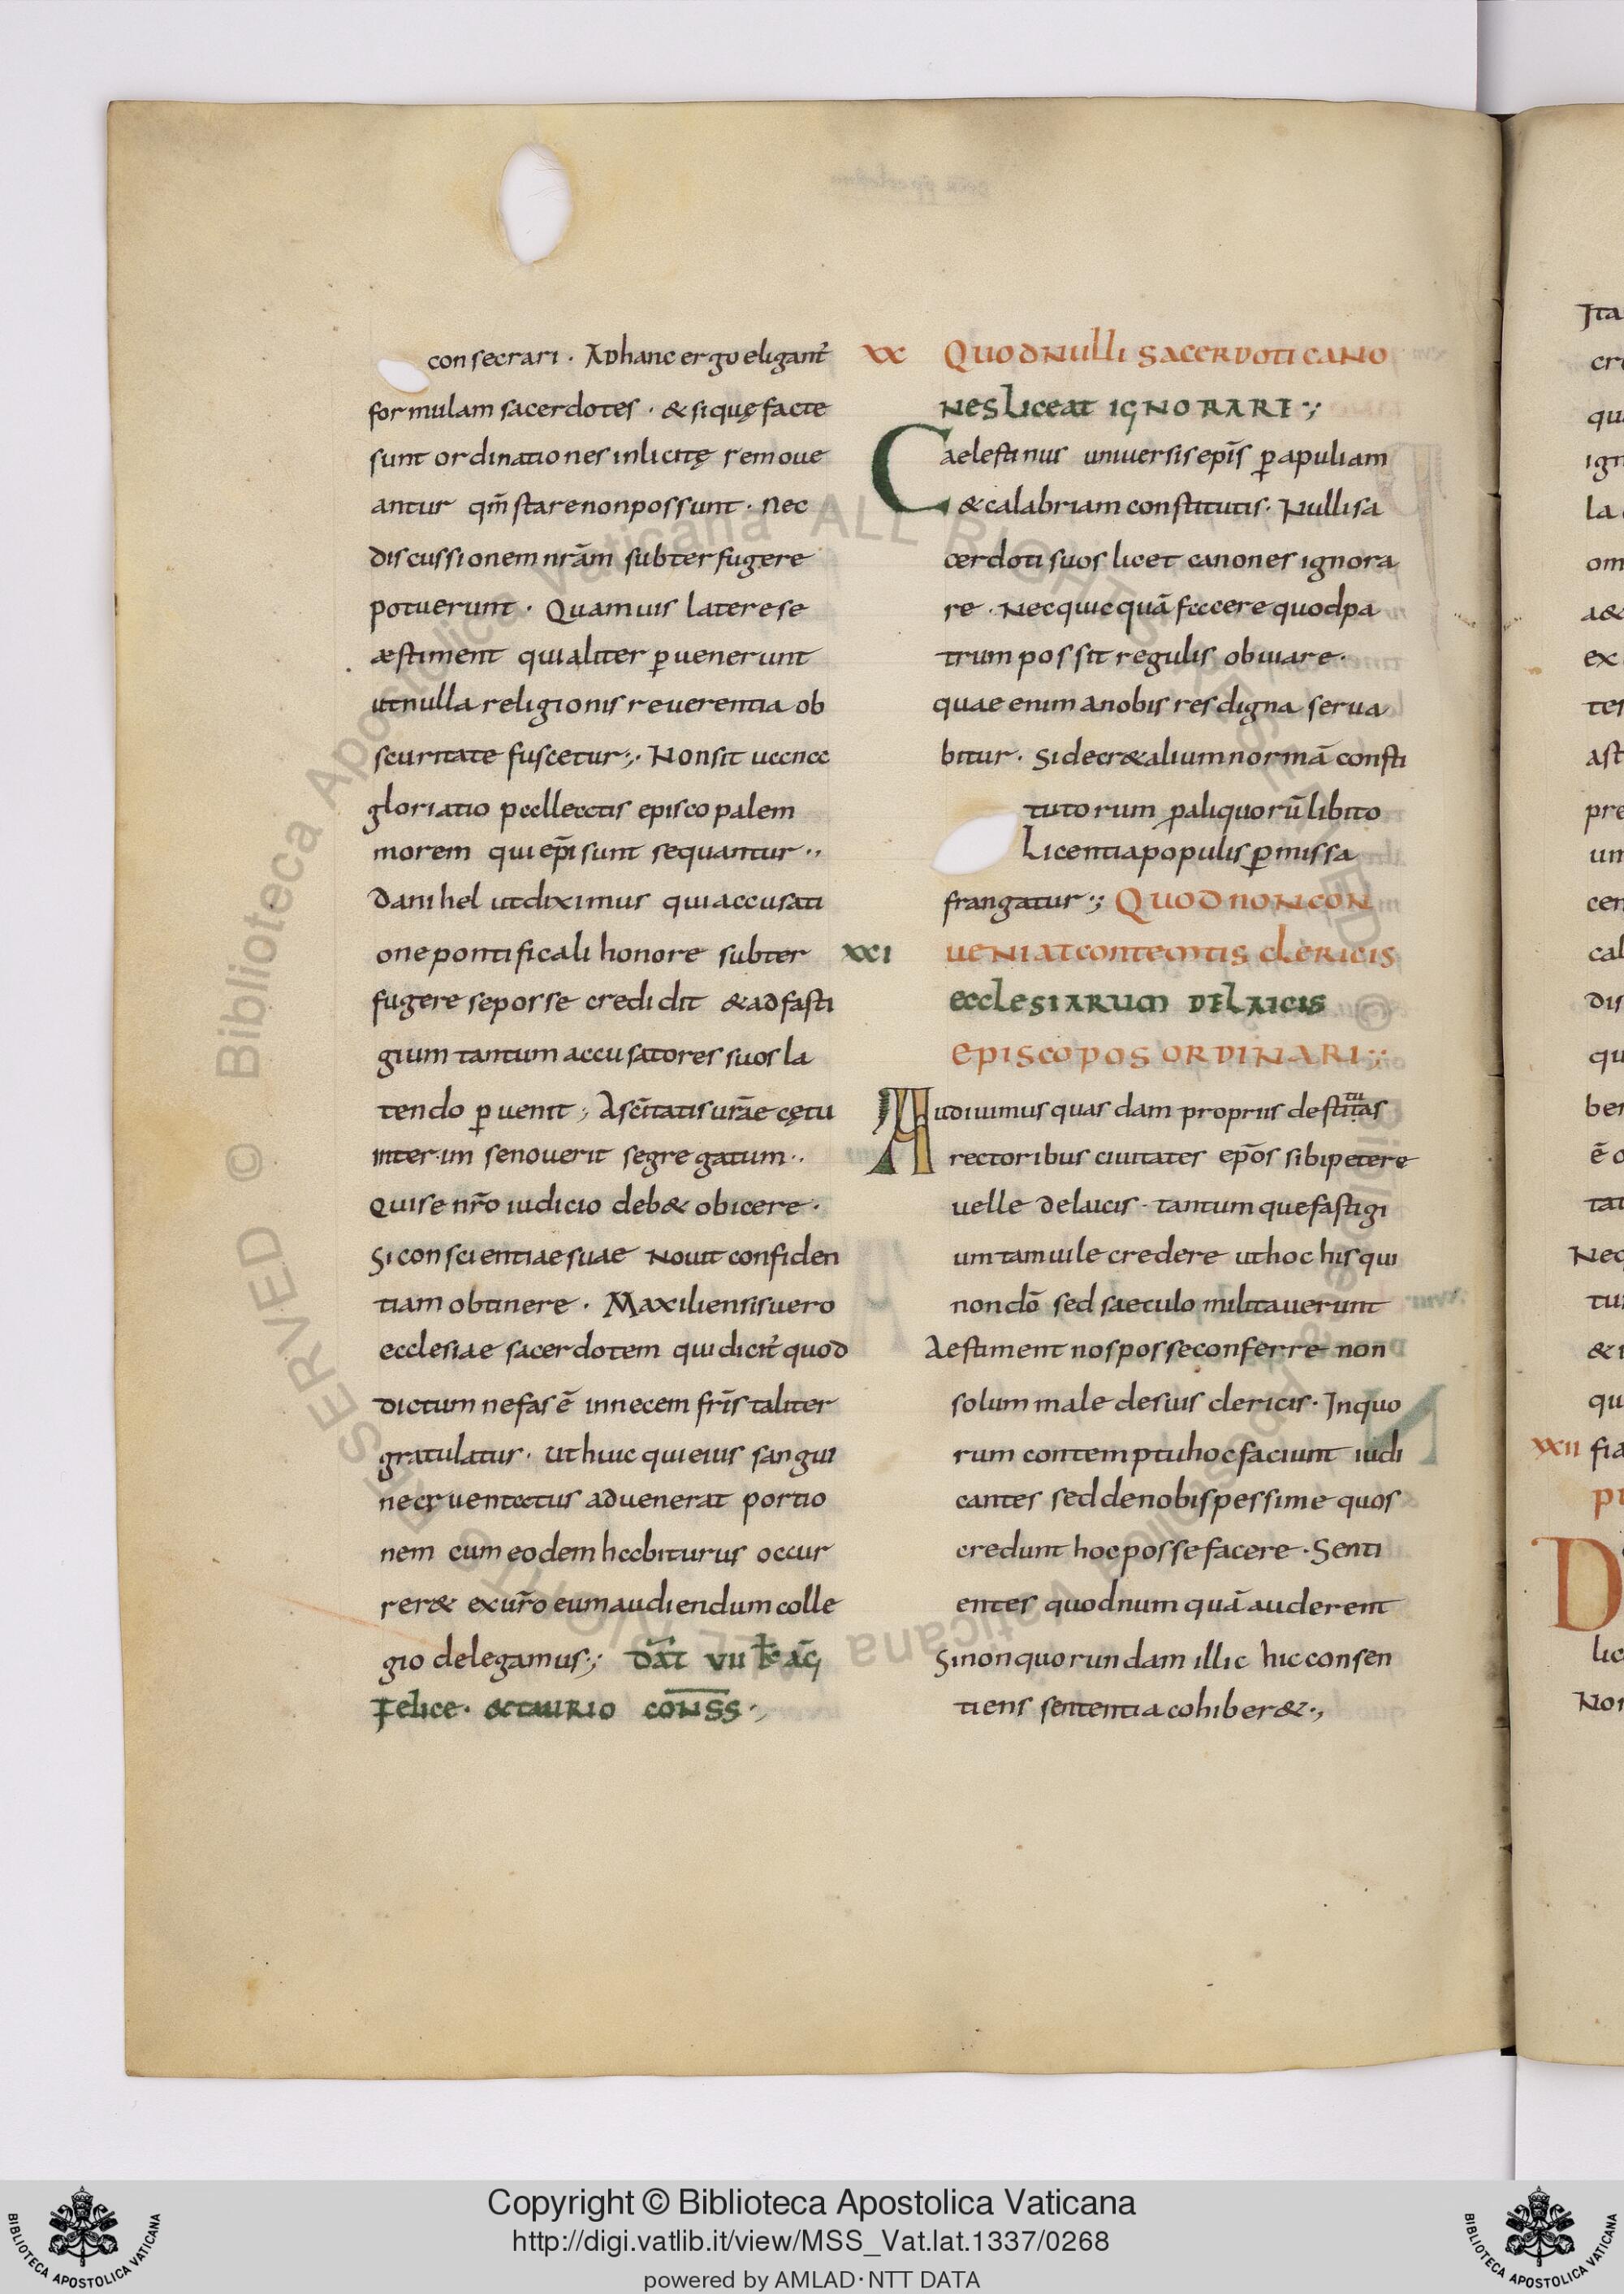 consecrari · Ad hanc ergo eligant̄
formulam sacerdotes · & si quę facte
sunt ordinationes inlicitę remoue
antur qm̄ stare non possunt · nec
discussionem nrām subter fugere
potuerunt · Quamuis latere se
æstiment qualiter ꝑuenerunt
ut nulla religionis reuerentia ob
scuritate fuscetur ;· Non sit uana
gloriatio palleatis episcopalem
morem qui ep̄i sunt sequantur ··
Danihel ut diximus qui accusati
one pontificali honore subter
fugere se posse credidit & ad fasti
gium tantum accusatores suos la
tendo ꝑuenit ; A sc̄itatis urāe cętu
interim se nouerit segregatum ··
Qui se nr̄o iudicio deb& obicere ·
Si conscientiae suae nouit confiden
tiam obtinere · Maxiliensis uero
ecclesiae sacerdotem qui dicit̄ quod
dictum nefas ē in necem fr̄is taliter
gratulatus · ut huic qui eius sangui
ne cruentatus aduenerat portio
nem cum eodem habiturus occur
rer& ex ur̄o eum audiendum colle
gio delegamus ;· Dāt VII kł āg
Felice · & taurio cōnss ·,
XX Quod nulli sacerdoti cano
nes liceat ignorari ·;
Caelestinus uniuersis ep̄is ꝑ apuliam
& calabriam constitutis · Nulli sa
cerdoti suos licet canones ignora
re · Nec quicquā facere quod pa
trum possit regulis obuiare ·
quae enim a nobis res digna serua
bitur · Si decr&alium normā consti
tutorum ꝑ aliquorū libito
Licentia populis ꝑmissa
frangatur ·; Quod non con
XXI ueniat contemtis clericis
ecclesiarum de laicis
episcopos ordinari ;·
Audiuimus quasdam propriis destitutas
rectoribus ciuitates ep̄os sibi petere
uelle de laicis · tantumque fastigi
um tam uile credere ut hoc his qui
non dō sed saeculo militauerunt
Aestiment nos posse conferre non
solum male de suis clericis · In quo
rum contemptu hoc faciunt iudi
cantes sed de nobis pessime quos
credunt hoc posse facere · Senti
entes quod numquā auderent
Si non quorundam illic hic consen
tiens sententia cohiber& ·,
Copyright © Biblioteca Apostolica Vaticana
http://digi.vatlib.it/view/MSS_Vat.lat.1337/0268
powered by AMLAD·NTT DATA
BIBLIOTECA APOSTOLICA VATICANA
BIBLIOTECA APOSTOLICA VATICANA